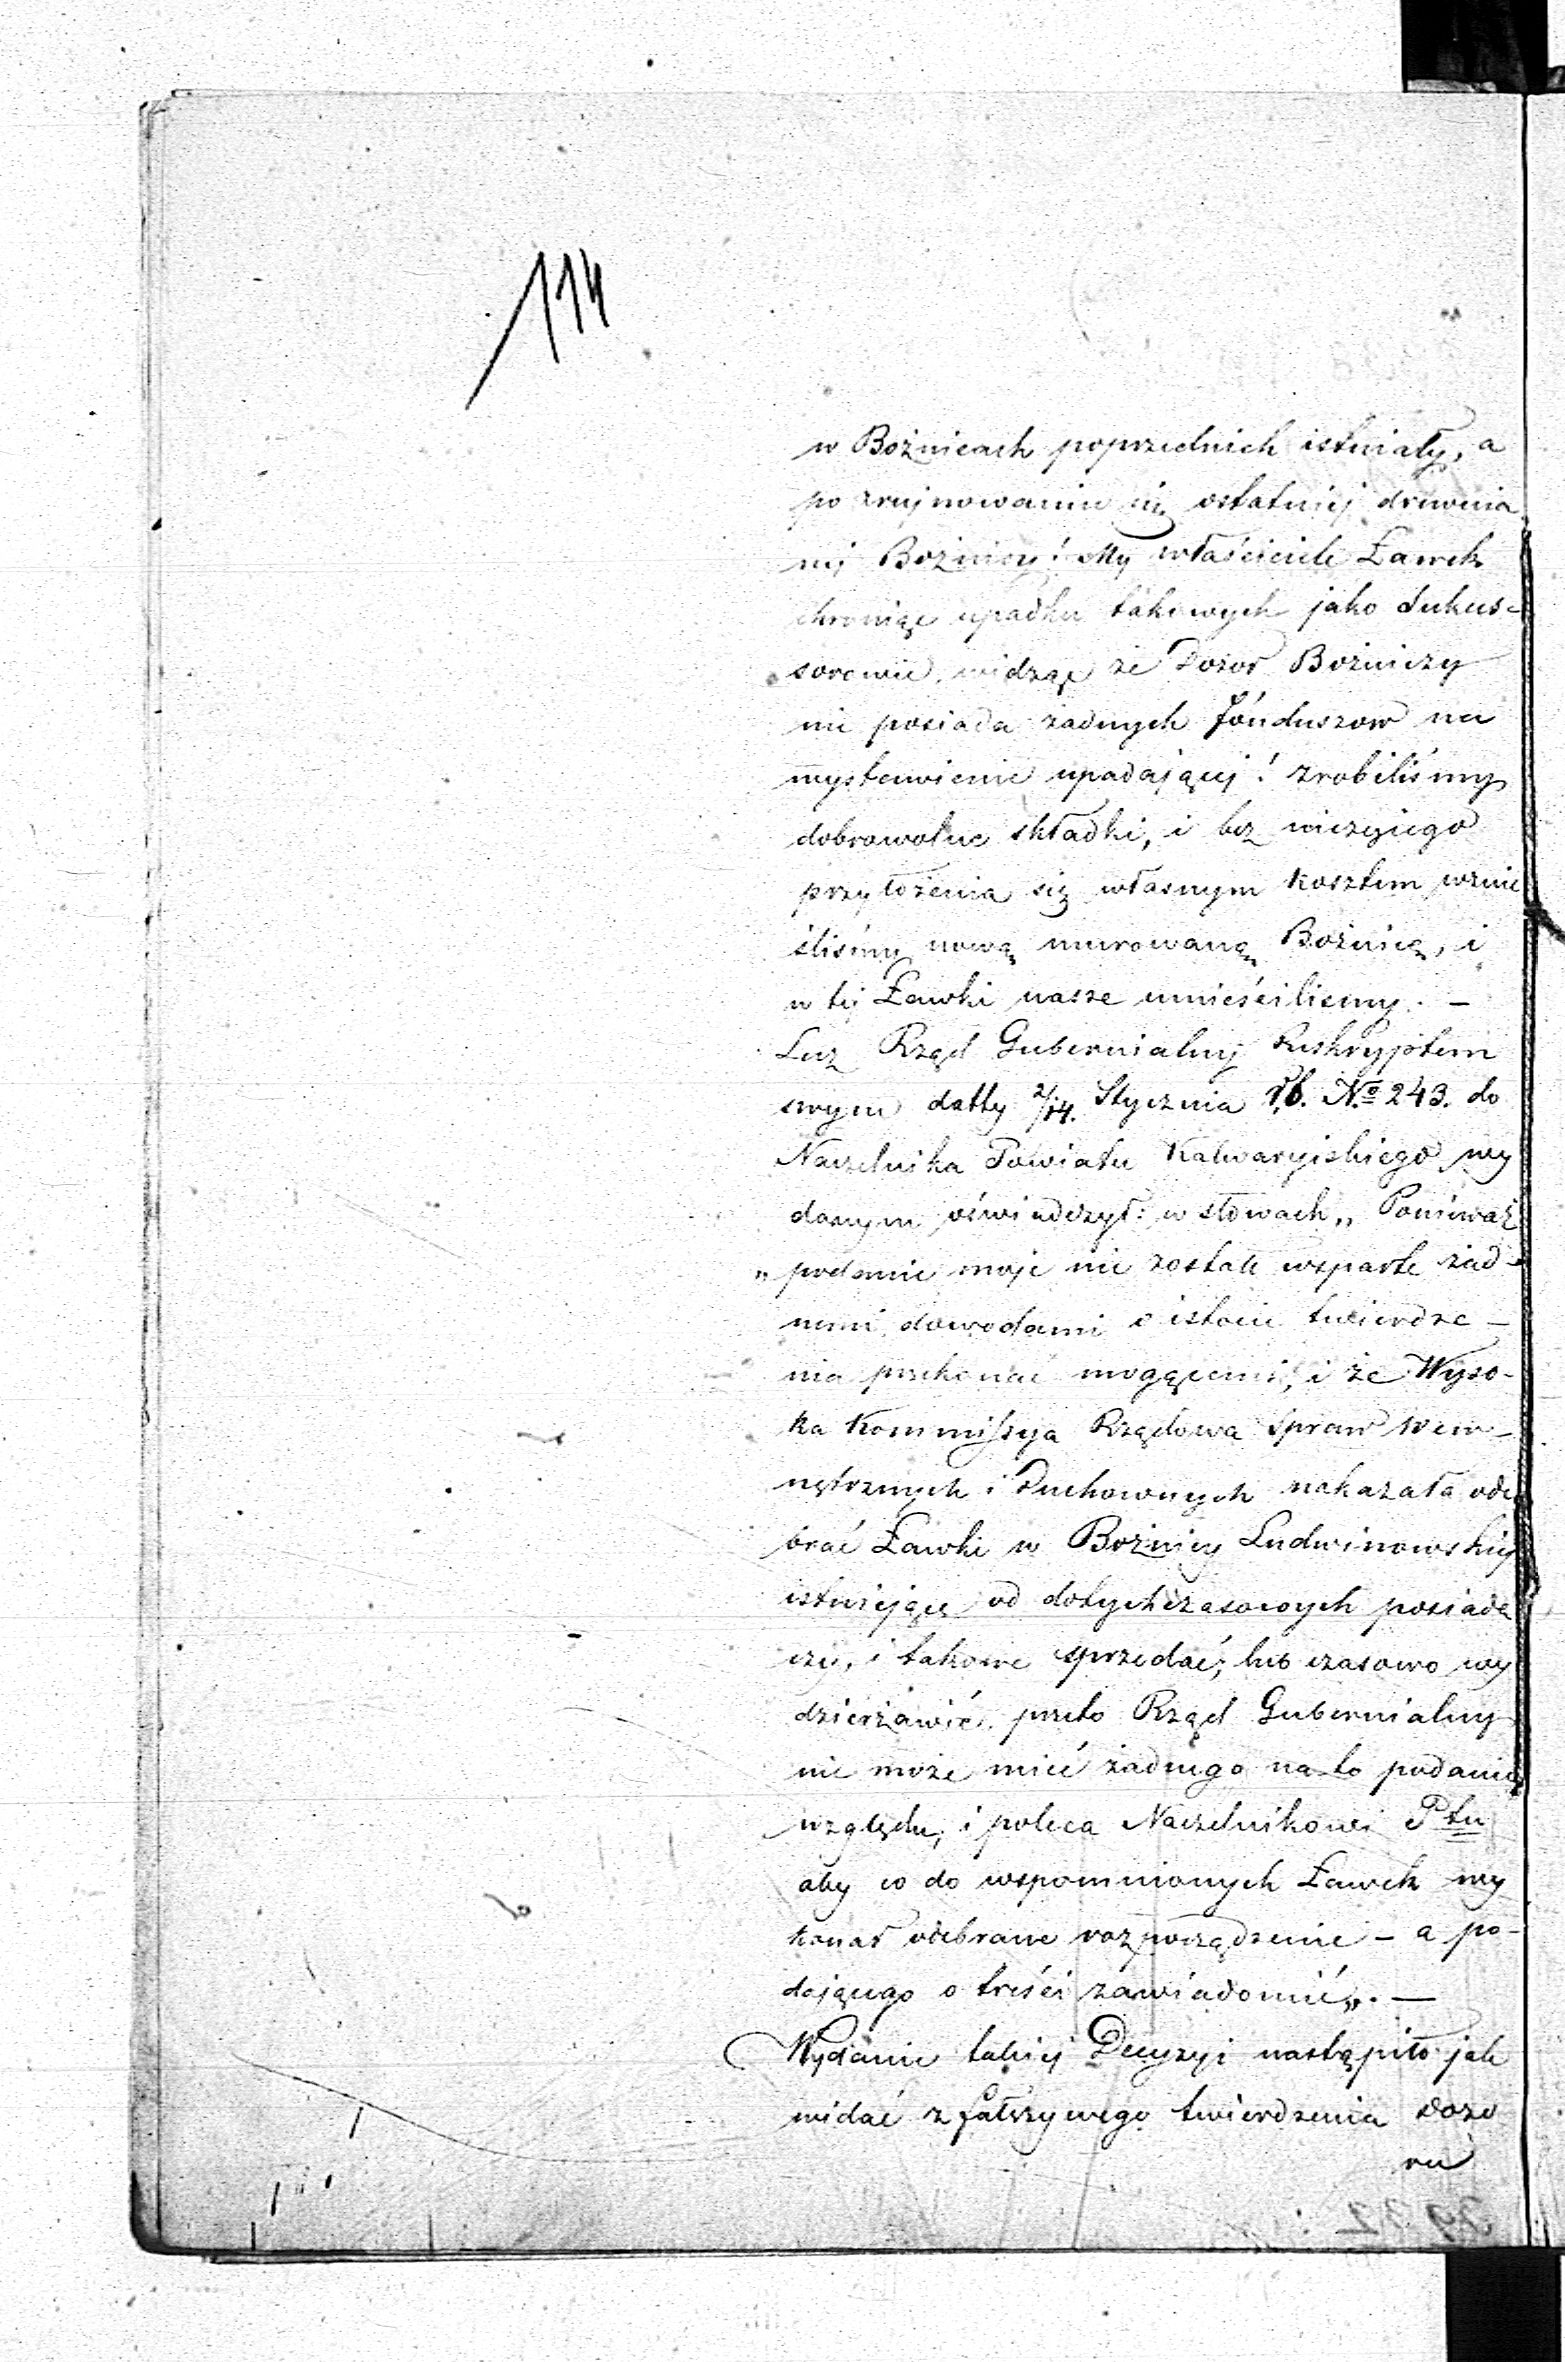 114
w Bożnicach poprzednich istniały, a
po zrujnowaniu się ostatniej drewnia
nej Bożnicy! My właściciele Ławek
chroniąc upadku takowych jako sukces=
sorowie, widząc że Dozor Bożniczy
nie posiada żadnych fónduszow na
wystawienie upadającej! zrobiliśmy
dobrowolne składki, i bez niczyjego
przyłożenia się własnym kosztem wznie
śliśmy nową murowaną Bożnicę, i
w tej Ławki nasze umieściliśmy. —
Lecz Rząd Gubernialny Reskryptem
swym datty 2/14. Stycznia r.b. No 243. do
Naczelnika Powiatu Kalwaryiskiego wy
danym oświadczył: w słowach „ Ponieważ
„ podanie moje nie zostało wsparte żad-
nemi dowodami o istocie twierdze-
nia przekonać mogącemi, i że Wyso-
ka Kommissya Rządowa Spraw Wew-
nętrznych i Duchownych nakazała ode
brać Ławki w Bożnicy Ludwinowskiej
istniejące od dotychczasowych posiada
czy, i takowe sprzedać, lub czasowo wy
dzierżawić, przeto Rząd Gubernialny
nie może mieć żadnego na to podanie
względu, i poleca Naczelnikowi Ptu
aby co do wspomnionych Ławek wy
konał odebrane rozporządzenie – a po-
dającego o treści zawiadomić„. —
Wydanie takiej Decyzyi nastąpiło jak
widać z fałszywego twierdzenia Dozo
ru